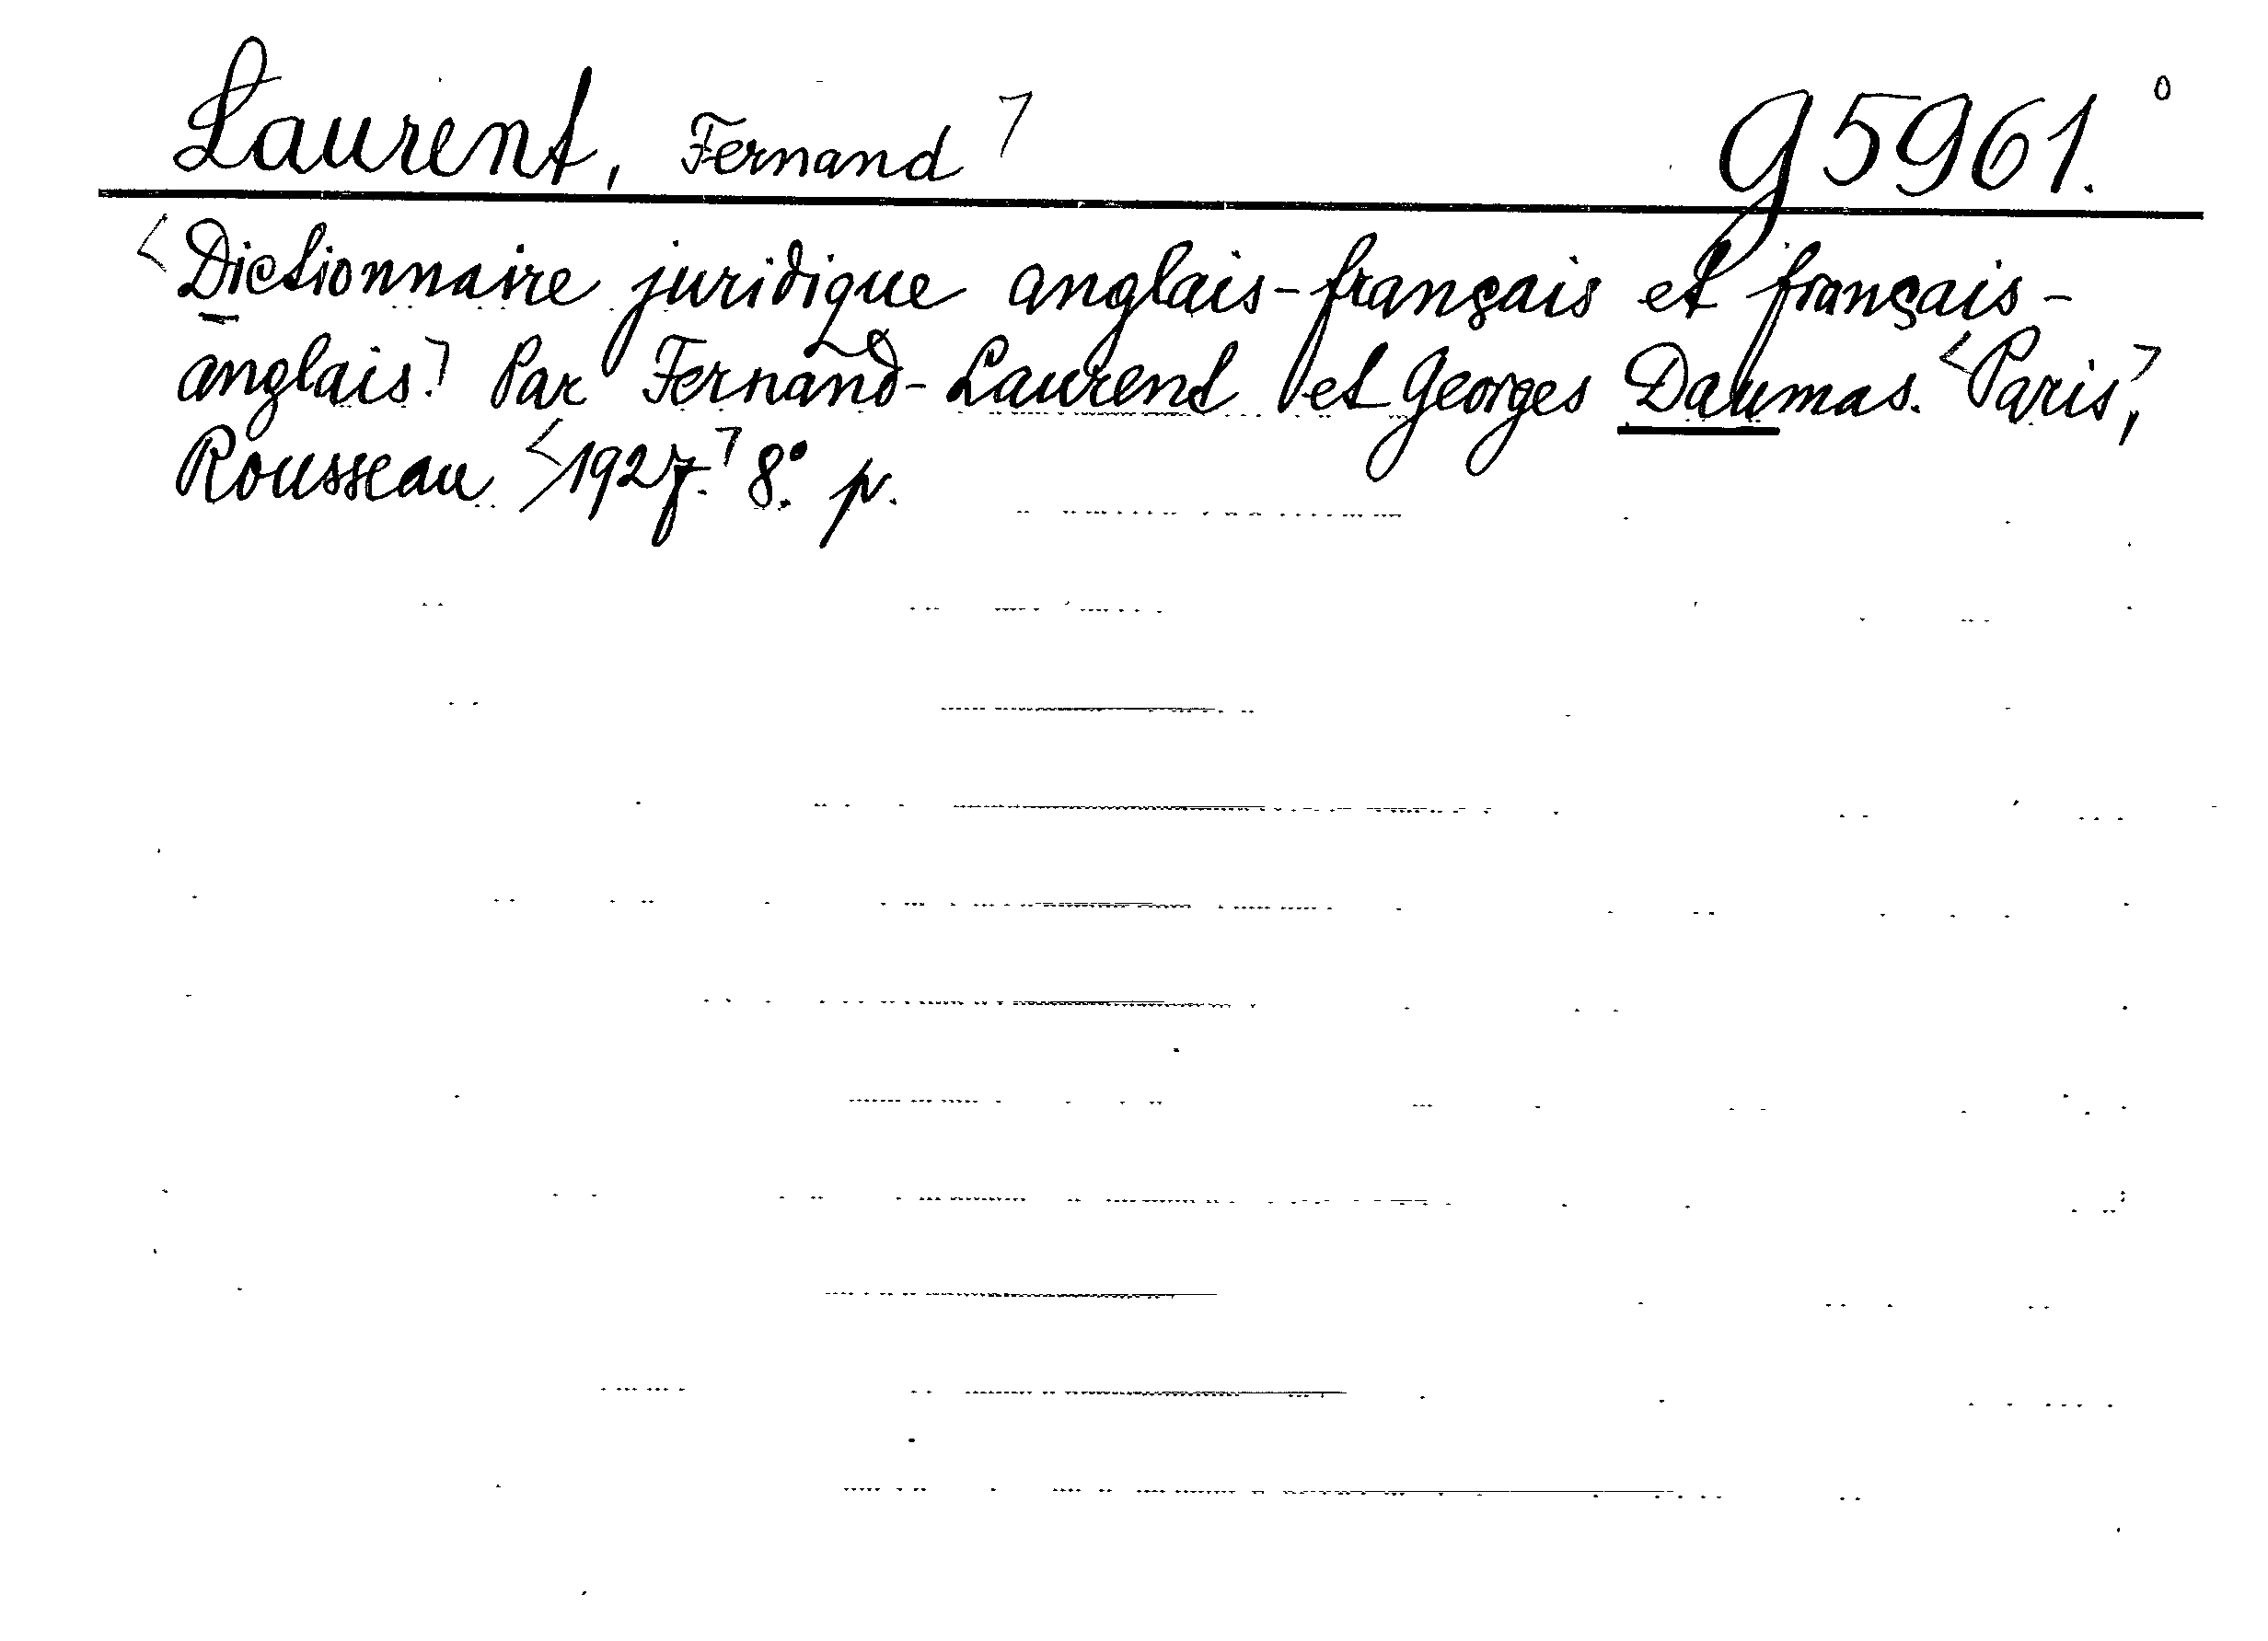 Laurent, Fernand ⁊ g 5961. o
<Dictionnaire juridique anglais-français et français-
anglais.⁊ Par Fernand-Laurent et Georges Daumas. <Paris,⁊
Rousseau <1927.⁊ 8°. p.